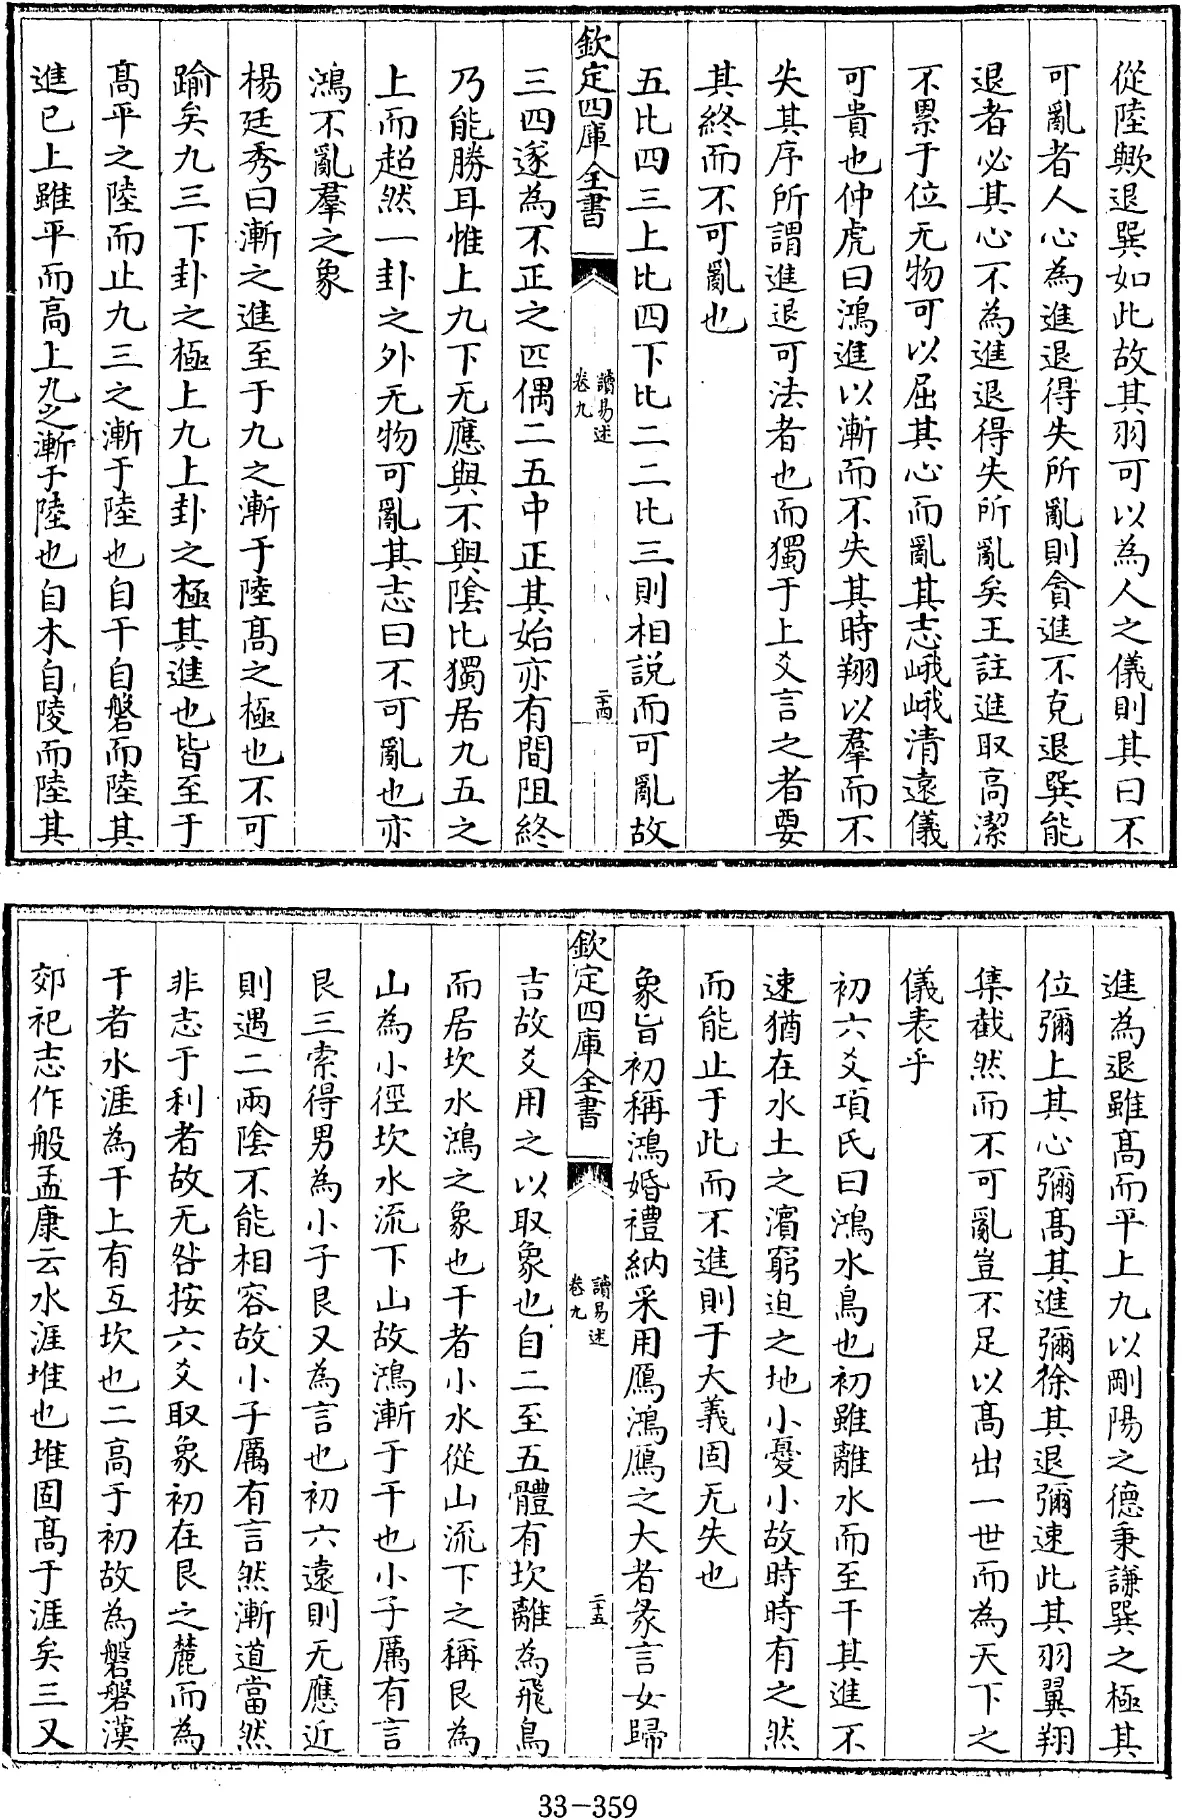 從陸歟退巽如此故其羽可以為人之儀則其曰不
可亂者人心為進退得失所亂則貪進不克退巽能
退者必其心不為進退得失所亂矣王註進取高潔
不累于位无物可以屈其心而亂其志峨峨清遠儀
可貴也仲虎曰鴻進以漸而不失其時翔以羣而不
失其序所謂進退可法者也而獨于上爻言之者要
其終而不可亂也
五比四三上比四下比二二比三則相説而可亂故
欽定四庫全書
讀易述
卷九
二十四
三四遂為不正之匹偶二五中正其始亦有間阻終
乃能勝耳惟上九下无應與不與陰比獨居九五之
上而超然一卦之外无物可亂其志曰不可亂也亦
鴻不亂羣之象
楊廷秀曰漸之進至于九之漸于陸髙之極也不可
踰矣九三下卦之極上九上卦之極其進也皆至于
髙平之陸而止九三之漸于陸也自干自磐而陸其
進已上雖平而高上九之漸于陸也自木自陵而陸其
進為退雖髙而平上九以剛陽之德秉謙巽之極其
位彌上其心彌髙其進彌徐其退彌速此其羽翼翔
集截然而不可亂豈不足以髙出一世而為天下之
儀表乎
初六爻項氏曰鴻水鳥也初雖離水而至干其進不
速猶在水土之濱窮迫之地小憂小故時時有之然
而能止于此而不進則于大義固无失也
象旨初稱鴻婚禮納采用鴈鴻鴈之大者彖言女歸
欽定四庫全書
讀易述
卷九
二十五
吉故爻用之以取象也自二至五體有坎離為飛鳥
而居坎水鴻之象也干者小水從山流下之稱艮為
山為小徑坎水流下山故鴻漸于干也小子厲有言
艮三索得男為小子艮又為言也初六遠則无應近
則遇二兩陰不能相容故小子厲有言然漸道當然
非志于利者故无咎按六爻取象初在艮之麓而為
干者水涯為干上有互坎也二高于初故為磐磐漢
郊祀志作般孟康云水涯堆也堆固髙于涯矣三又
33-359